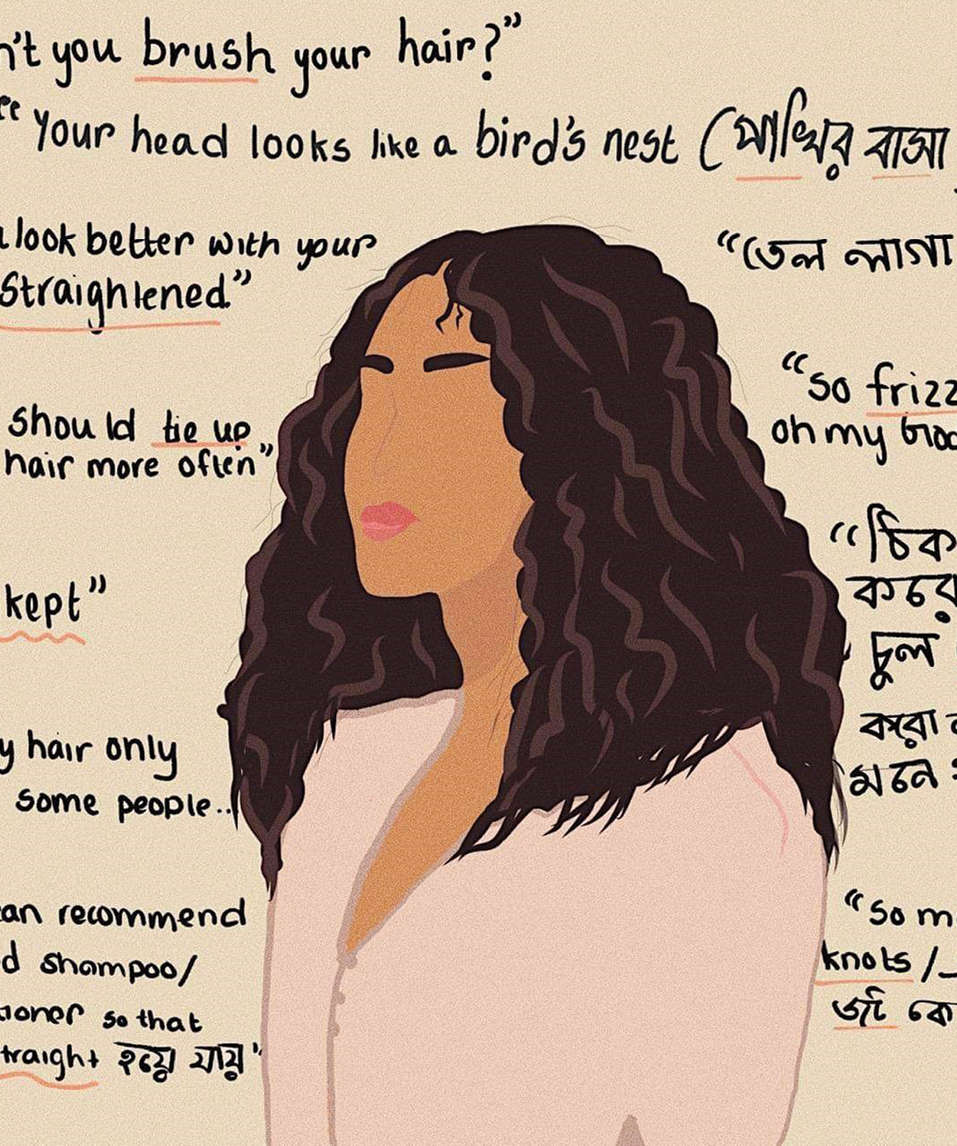 n't you brush your hair?"
"Your head looks like a bird's nest (পাখির বাসা
look better with your
straightened."
"তেল লাগা
"so frizz
oh my
should tie up
hair more often"
"ঠিক
করে
চুল
করো
মনে
kept"
y hair only
some people..
an recommend
d shampoo/
ioner so that
traight হয়ে যায়"
"so m
knots /
জট